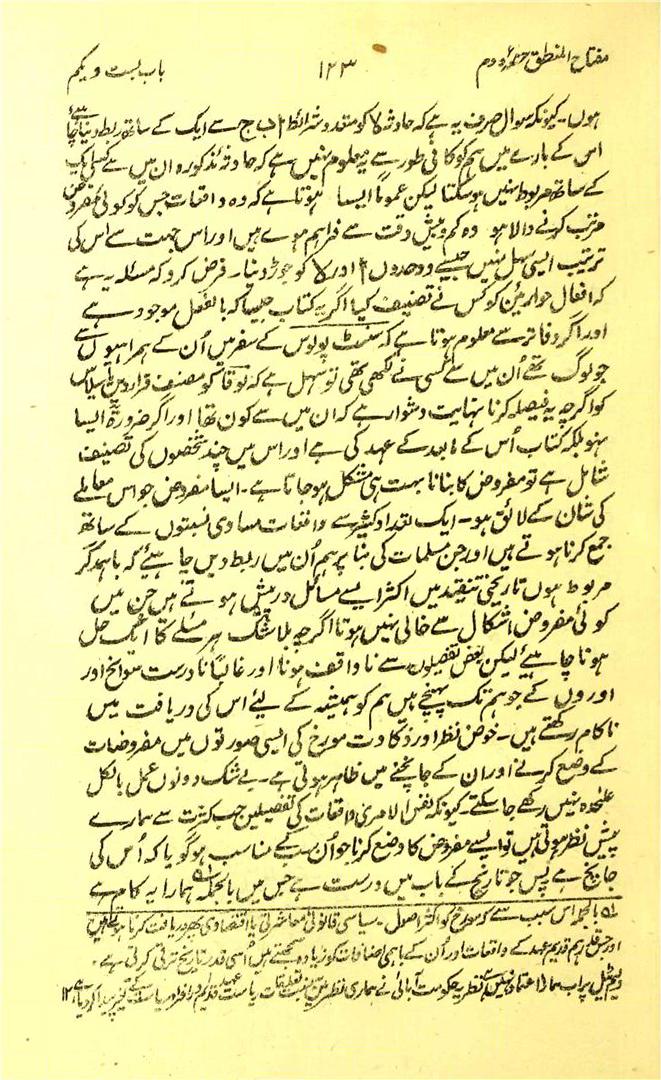 مفتاح المنطق حصۂ دوم ۱۲۳ باب بست و یکم
ہوں۔ کیونکہ سوال صرف یہ ہے کہ حادثہ لا کو متعدد شرائط ا ب ج سے ایک کے ساتھ ربط دینا چاہیے
اس کے بارے میں ہم کو کافی طور سے یہ معلوم نہیں ہے کہ حادثہ مذکورہ ان میں سے کسی ایک
کے ساتھ مربوط نہیں ہو سکتا لیکن عموماً ایسا ہوتا ہے کہ وہ واقعات جس کو کوئی مفروض
مرتب کرنے والا ہو وہ کم و بیش وقت سے فراہم ہوے ہیں اور اس جہت سے اس کی
ترتیب ایسی سہل نہیں جیسے دو حدوں ا اور لا کو جوڑ دینا۔ فرض کرو کہ مسئلہ یہ ہے
کہ افعال حواریین کو کس نے تصنیف کیا اگر یہ کتاب جیسا کہ بالفعل موجود ہے
اور اگر دفاتر سے معلوم ہوتا ہے کہ سنٹ پولوس کے سفر میں اُن کے ہمراہوں سے
جو لوگ تھے اُن میں سے کسی نے لکھی تھی تو سہل ہے کہ لوقا کو مصنف قرار دیں یا سیلاس
کو اگرچہ یہ فیصلہ کرنا نہایت دشوار ہے کہ ان میں سے کون تھا اور اگر ضرورۃً ایسا
نہو بلکہ کتاب اُس کے مابعد کے عہد کی ہے اور اس میں چند شخصوں کی تصنیف
شامل ہے تو مفروض کا بنانا بہت ہی مشکل ہو جاتا ہے۔ ایسا مفروض جو اس معاملے
کی شان کے لائق ہو۔ ایک تعداد کثیر سے واقعات مساوی نسبتوں کے ساتھ
جمع کرنا ہوتے ہیں اور جن مسلمات کی بنا پر ہم اُن میں ربط دیں چاہیئے کہ باہمدگر
مربوط ہوں تاریخی تنقید میں اکثر ایسے مسائل درپیش ہوتے ہیں جن میں
کوئی مفروض اشکال سے خالی نہیں ہوتا اگرچہ بلا شک ہر مسئلے کا ٹھیک حل
ہونا چاہیئے لیکن بعض تفصیلوں سے نا واقف ہونا اور غالباً نا درست سوانح اور
اوروں کے جو ہم تک پہنچے ہیں ہم کو ہمیشہ کے لیئے اس کی دریافت میں
ناکام رکھتے ہیں۔ خوض نظر اور ذکاوت مورخ کی ایسی صورتوں میں مفروضات
کے وضع کرنے اور ان کے جانچنے میں ظاہر ہوتی ہے۔ بے شک دونوں عمل بالکل
علٰحدہ نہیں رکھے جا سکتے۔ کیونکہ نفس الامری واقعات کی تفصیلیں جب کثرت سے ہمارے
پیش نظر ہوتی ہیں تو ایسے مفروض کا وضع کرنا جو اُن کے مناسب ہو گویا کہ اُس کی
جانچ ہے پس جو تاریخ کے باب میں درست ہے جس میں بالجملہ ہمارا یہ کام ہے
بالجملہ اس سبب سے کہ مورخ کو اکثر اصول۔ سیاسی قانونی معاشرتی یا اقتصادی پھر دریافت کرنا ہوتے ہیں
اور جس قدر ہم قدیم عہد کے واقعات اور اُن کے باہمی اضافات کو زیادہ سمجھتے ہیں اُسی قدر تاریخ ترقی کرتی ہے۔
پر اب ہمارا اعتماد نہیں نظریہ حکومت آبائی نے ہماری نظر میں تعلقات ریاست